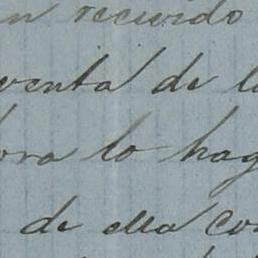 un recuerdo
venta de l
ora lo hag
de ella co